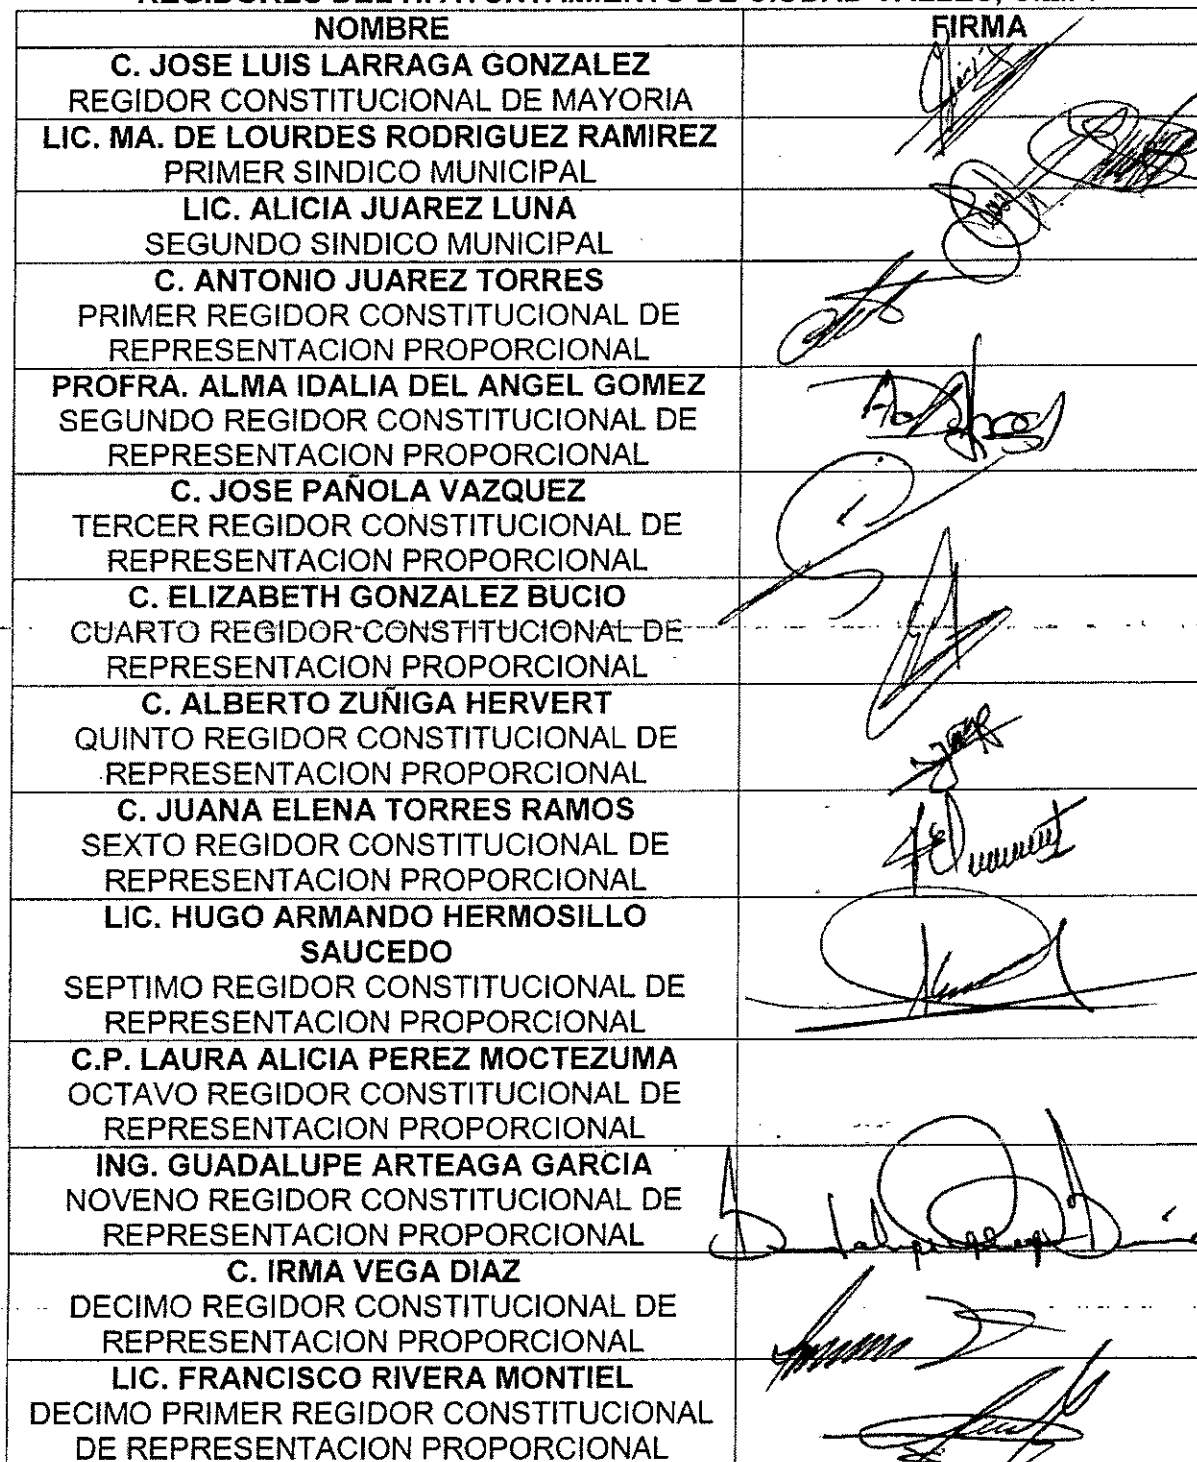 NOMBRE FIRMA
C. JOSE LUIS LARRAGA GONZALEZ
REGIDOR CONSTITUCIONAL DE MAYORIA
LIC. MA. DE LOURDES RODRIGUEZ RAMIREZ
PRIMER SINDICO MUNICIPAL
LIC. ALICIA JUAREZ LUNA
SEGUNDO SINDICO MUNICIPAL
C. ANTONIO JUAREZ TORRES
PRIMER REGIDOR CONSTITUCIONAL DE
REPRESENTACION PROPORCIONAL
PROFRA. ALMA IDALIA DEL ANGEL GOMEZ
SEGUNDO REGIDOR CONSTITUCIONAL DE
REPRESENTACION PROPORCIONAL
C. JOSE PAÑOLA VAZQUEZ
TERCER REGIDOR CONSTITUCIONAL DE
REPRESENTACION PROPORCIONAL
C. ELIZABETH GONZALEZ BUCIO
CUARTO REGIDOR CONSTITUCIONAL DE
REPRESENTACION PROPORCIONAL
C. ALBERTO ZUÑIGA HERVERT
QUINTO REGIDOR CONSTITUCIONAL DE
REPRESENTACION PROPORCIONAL
C. JUANA ELENA TORRES RAMOS
SEXTO REGIDOR CONSTITUCIONAL DE
REPRESENTACION PROPORCIONAL
LIC. HUGO ARMANDO HERMOSILLO
SAUCEDO
SEPTIMO REGIDOR CONSTITUCIONAL DE
REPRESENTACION PROPORCIONAL
C.P. LAURA ALICIA PEREZ MOCTEZUMA
OCTAVO REGIDOR CONSTITUCIONAL DE
REPRESENTACION PROPORCIONAL
ING. GUADALUPE ARTEAGA GARCIA
NOVENO REGIDOR CONSTITUCIONAL DE
REPRESENTACION PROPORCIONAL
C. IRMA VEGA DIAZ
DECIMO REGIDOR CONSTITUCIONAL DE
REPRESENTACION PROPORCIONAL
LIC. FRANCISCO RIVERA MONTIEL
DECIMO PRIMER REGIDOR CONSTITUCIONAL
DE REPRESENTACION PROPORCIONAL